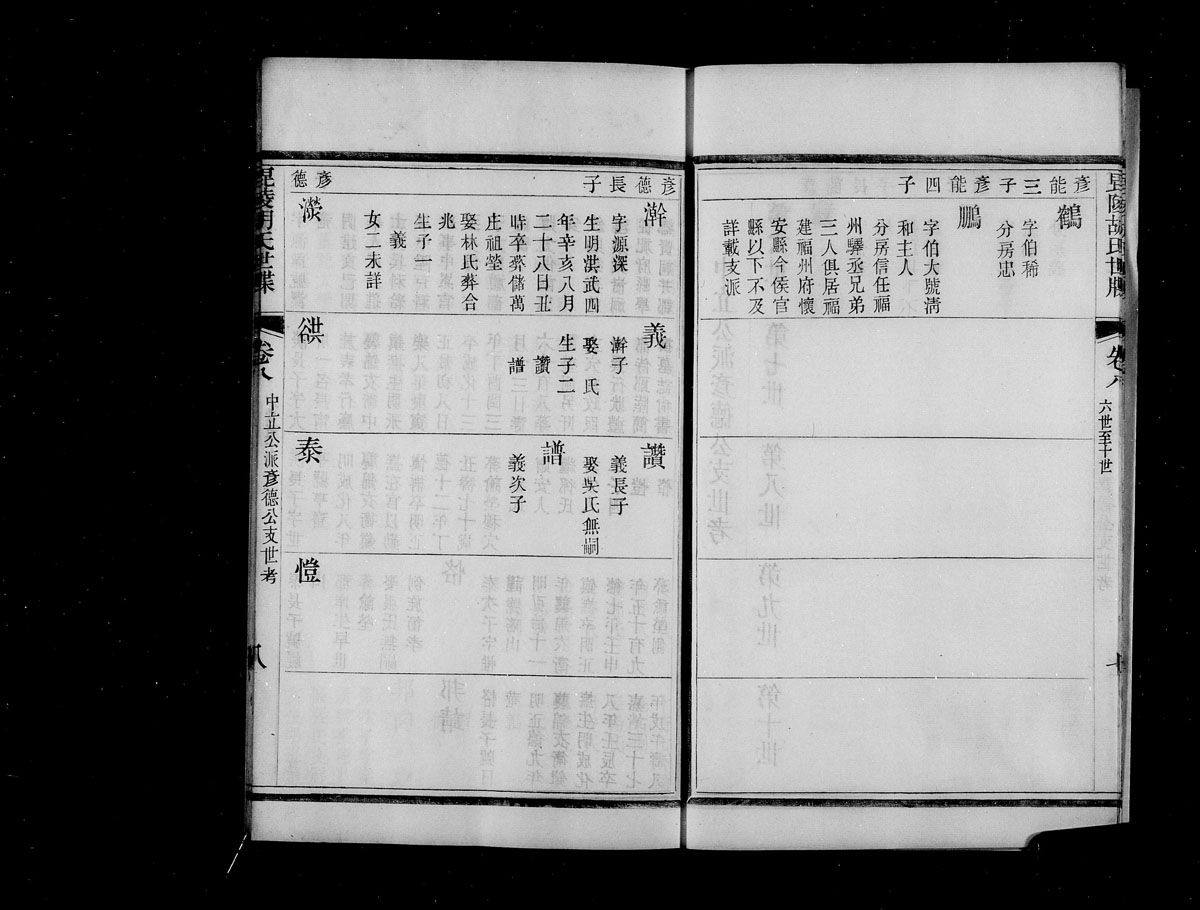 毘陵胡氏世牒
卷八
六世至十世
七
彥能三子
鶴
字伯稀
分房忠
彥能四子
鵬
字伯大號淸
和主人
分房信任福
州驛丞兄弟
三人俱居福
建福州府懷
安縣今侯官
縣以下不及
詳載支派
彥德長子
澣
字源深
生明洪武四
年辛亥八月
二十八日丑
時卒葬儲萬
庄祖塋
娶林氏葬合
兆
生子一
義
女二未詳
義
澣子
娶 氏
生子二
讚
譜
讚
義長子
娶吳氏無嗣
譜
義次子
彥德
濙
䜤
泰
愷
毘陵胡氏世牒
卷八
中立公派彥德公支世考
八